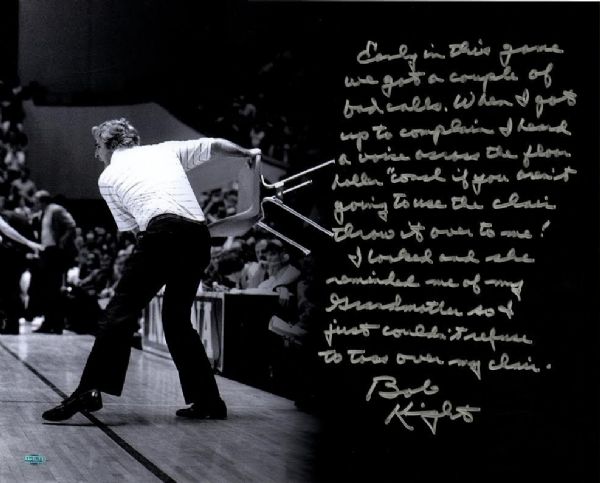 Early in this game
we got a couple of
bad calls. When I got
up to complain I heard
a voice across the floor
holler "coach if you aren't
going to use the chair
throw it over to me!
I looked and she
reminded me of my
Grandmother so I
just couldn't refuse
to toss over my chair.
Bob
Knight